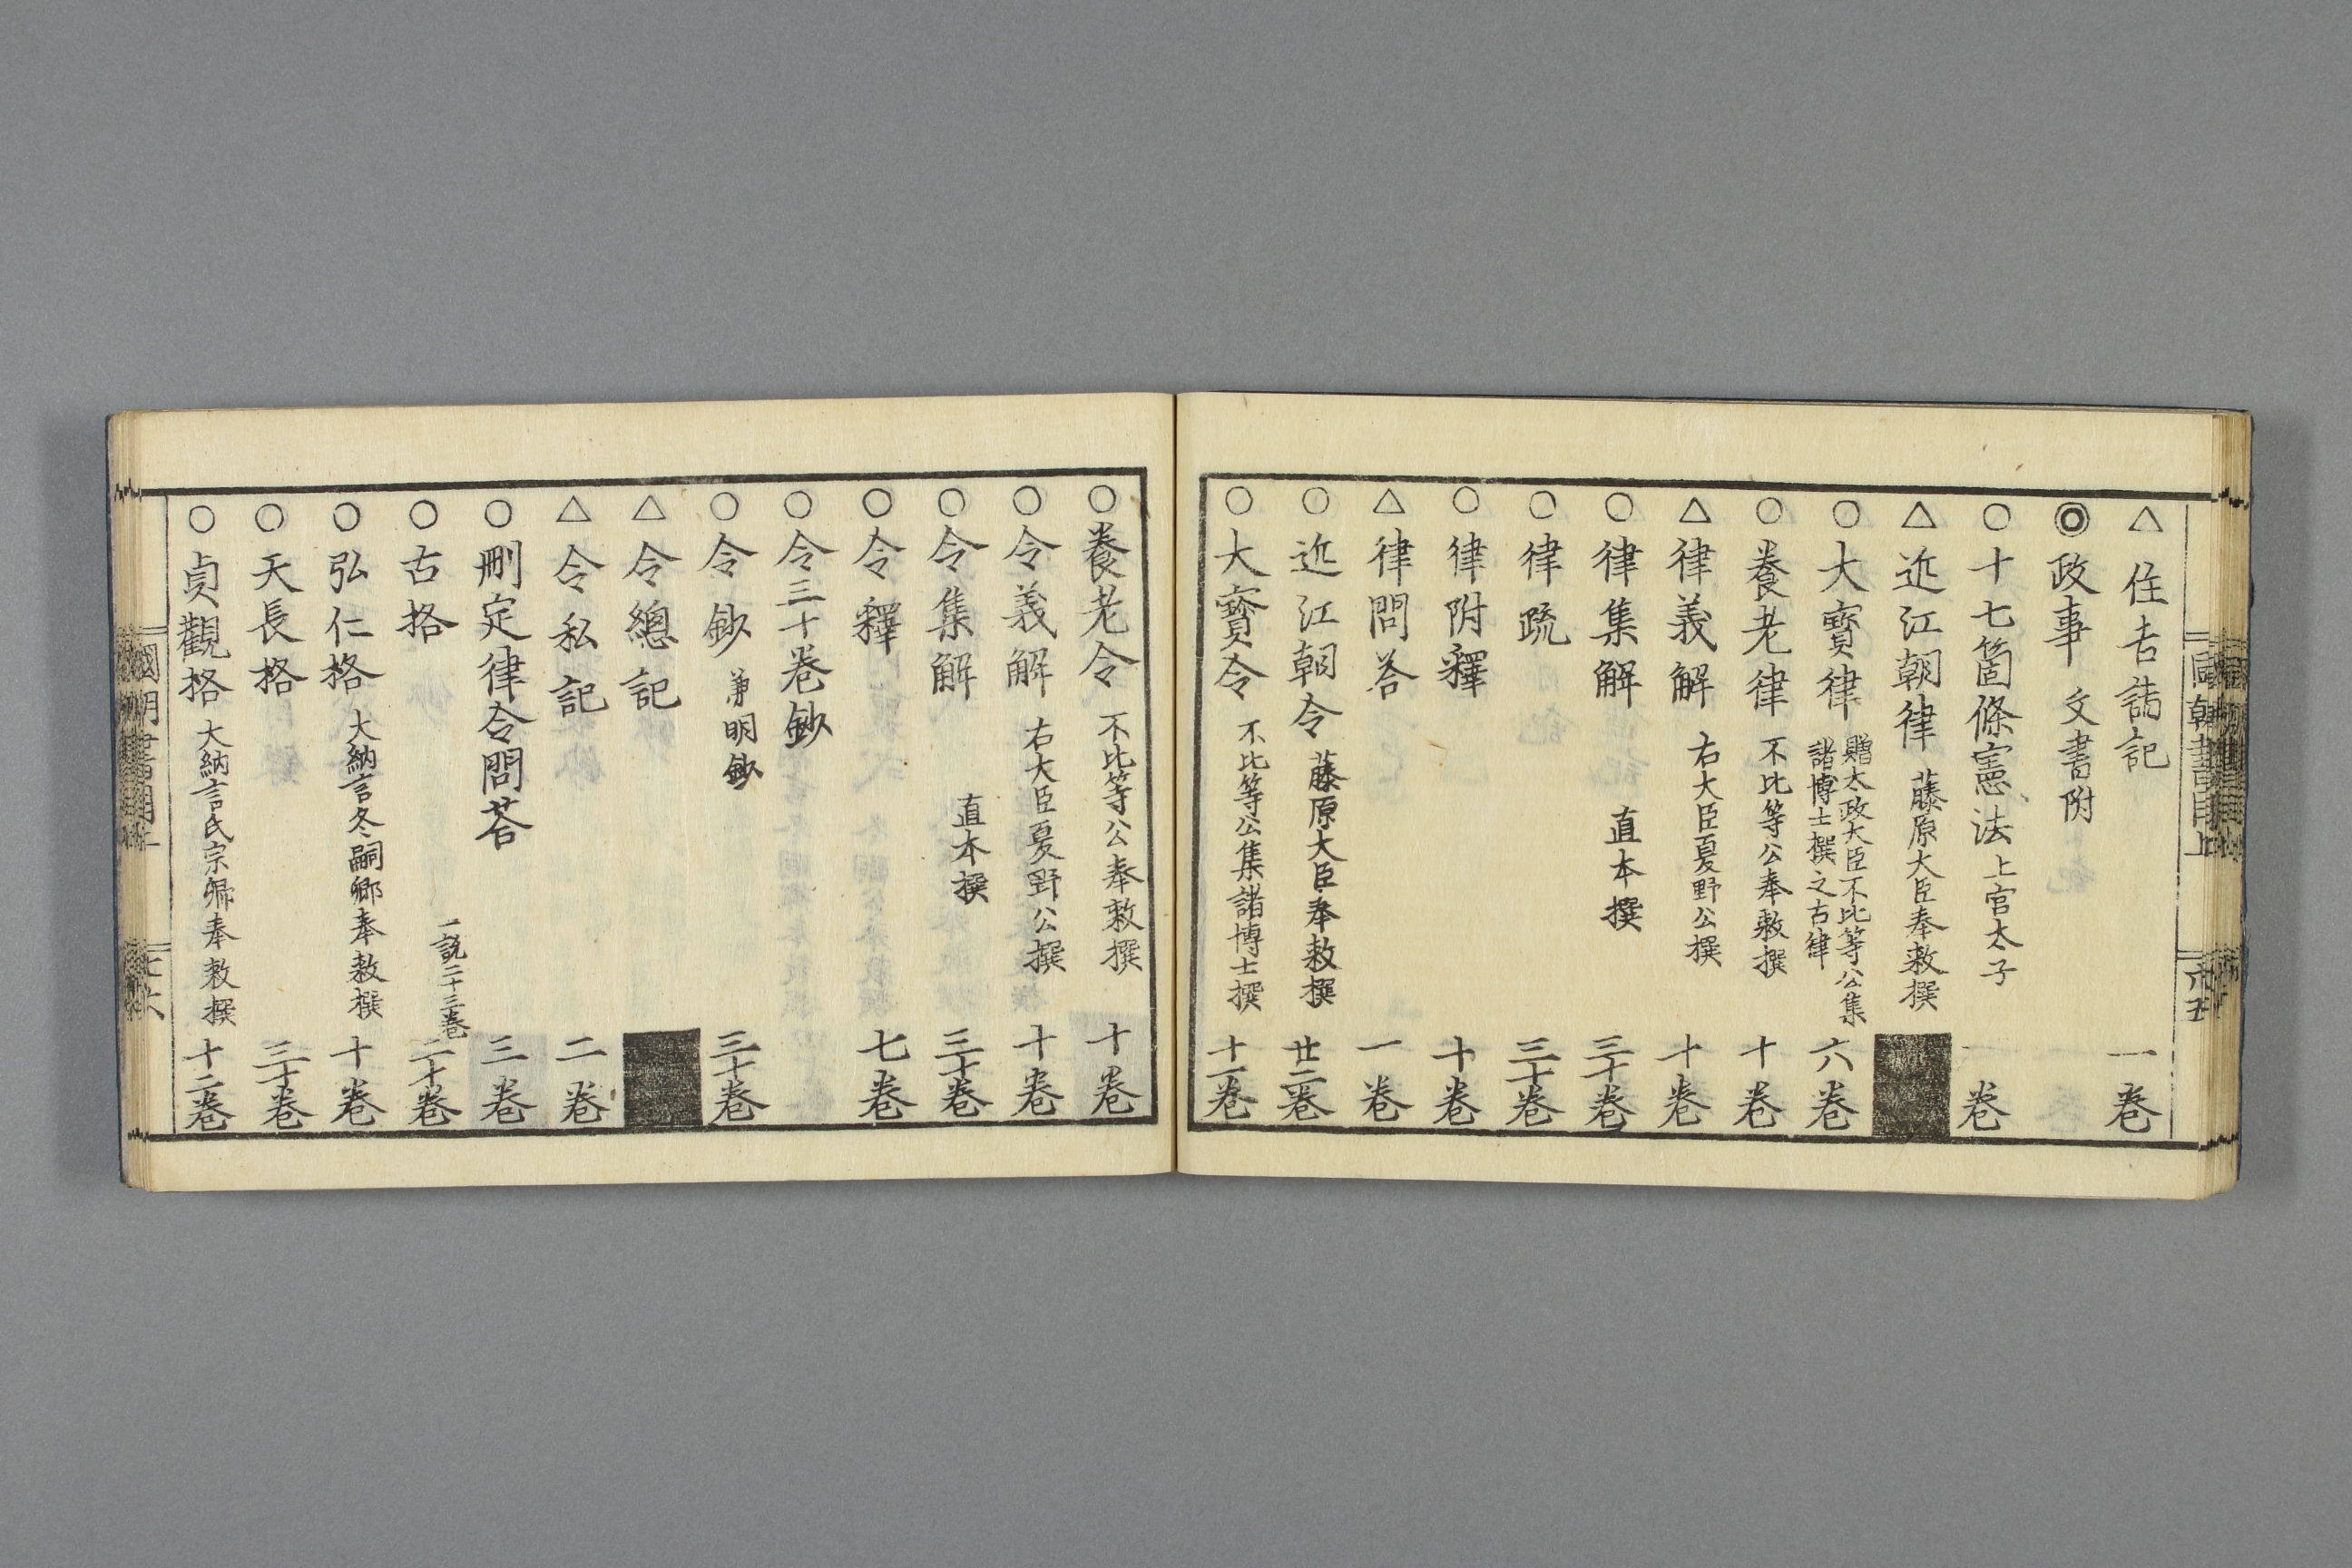 △住吉誥記 一卷
◎政事 文書附
○十七箇條憲法 上宮太子 一卷
△近江朝律 藤原大臣奉敕撰
○大寶律 贈太政大臣不比等公集
諸博士撰之古律 六卷
○養老律 不比等公奉敕撰 十卷
△律義解 右大臣夏野公撰 十卷
○律集解 直本撰 三十卷
○律疏 三十卷
○律附釋 十卷
△律問荅 一卷
○近江朝令 藤原大臣奉敕撰 廿二卷
○大寶令 不比等公集諸博士撰 十一卷
○養老令 不比等公奉敕撰 十卷
○令義解 右大臣夏野公撰 十卷
○令集解 直本撰 三十卷
○令釋 七卷
○令三十卷鈔
○令鈔 明鈔 三十卷
△令總記
△令私記 二卷
○刪定律令問荅 三卷
○古格 一說二十三卷 二十卷
○弘仁格 大納言冬嗣卿奉敕撰 十卷
○天長格 三十卷
○貞觀格 大納言氏宗卿奉敕撰 十二卷
國朝書目上